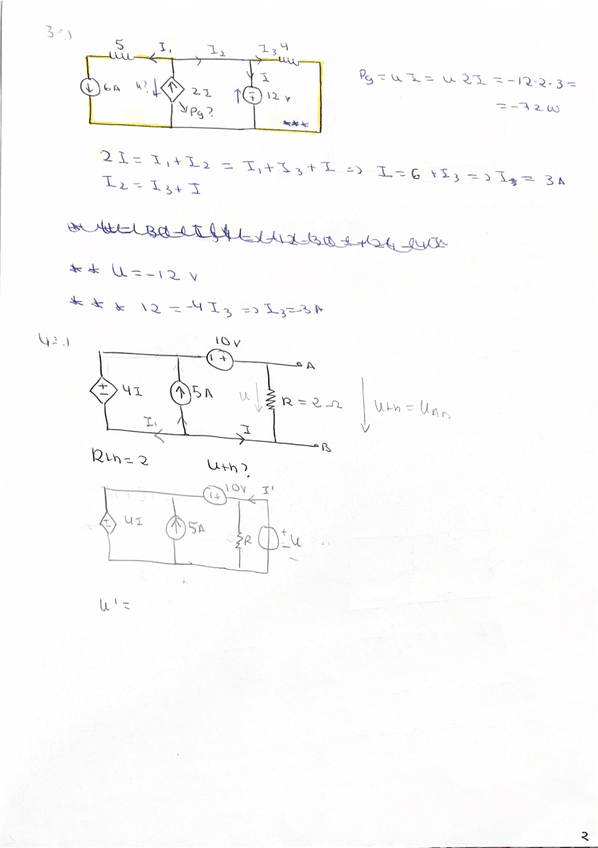 3º)
5 I₁ I₂ I₃ 4
6A u? 2I I 12 v
Pg?
***
Pg = u I = u 2I = -12·2·3 =
= -72 W
2I = I₁ + I₂ = I₁ + I₃ + I => I = 6 + I₃ => I = 3A
I₂ = I₃ + I
** U = -12 v
*** 12 = -4 I₃ => I₃ = -3A
4º)
10v
A
4I 5A u R = 2Ω
I₁ I
B
Rth = 2 Uth?
10V I'
4I 5A R u
u' =
2